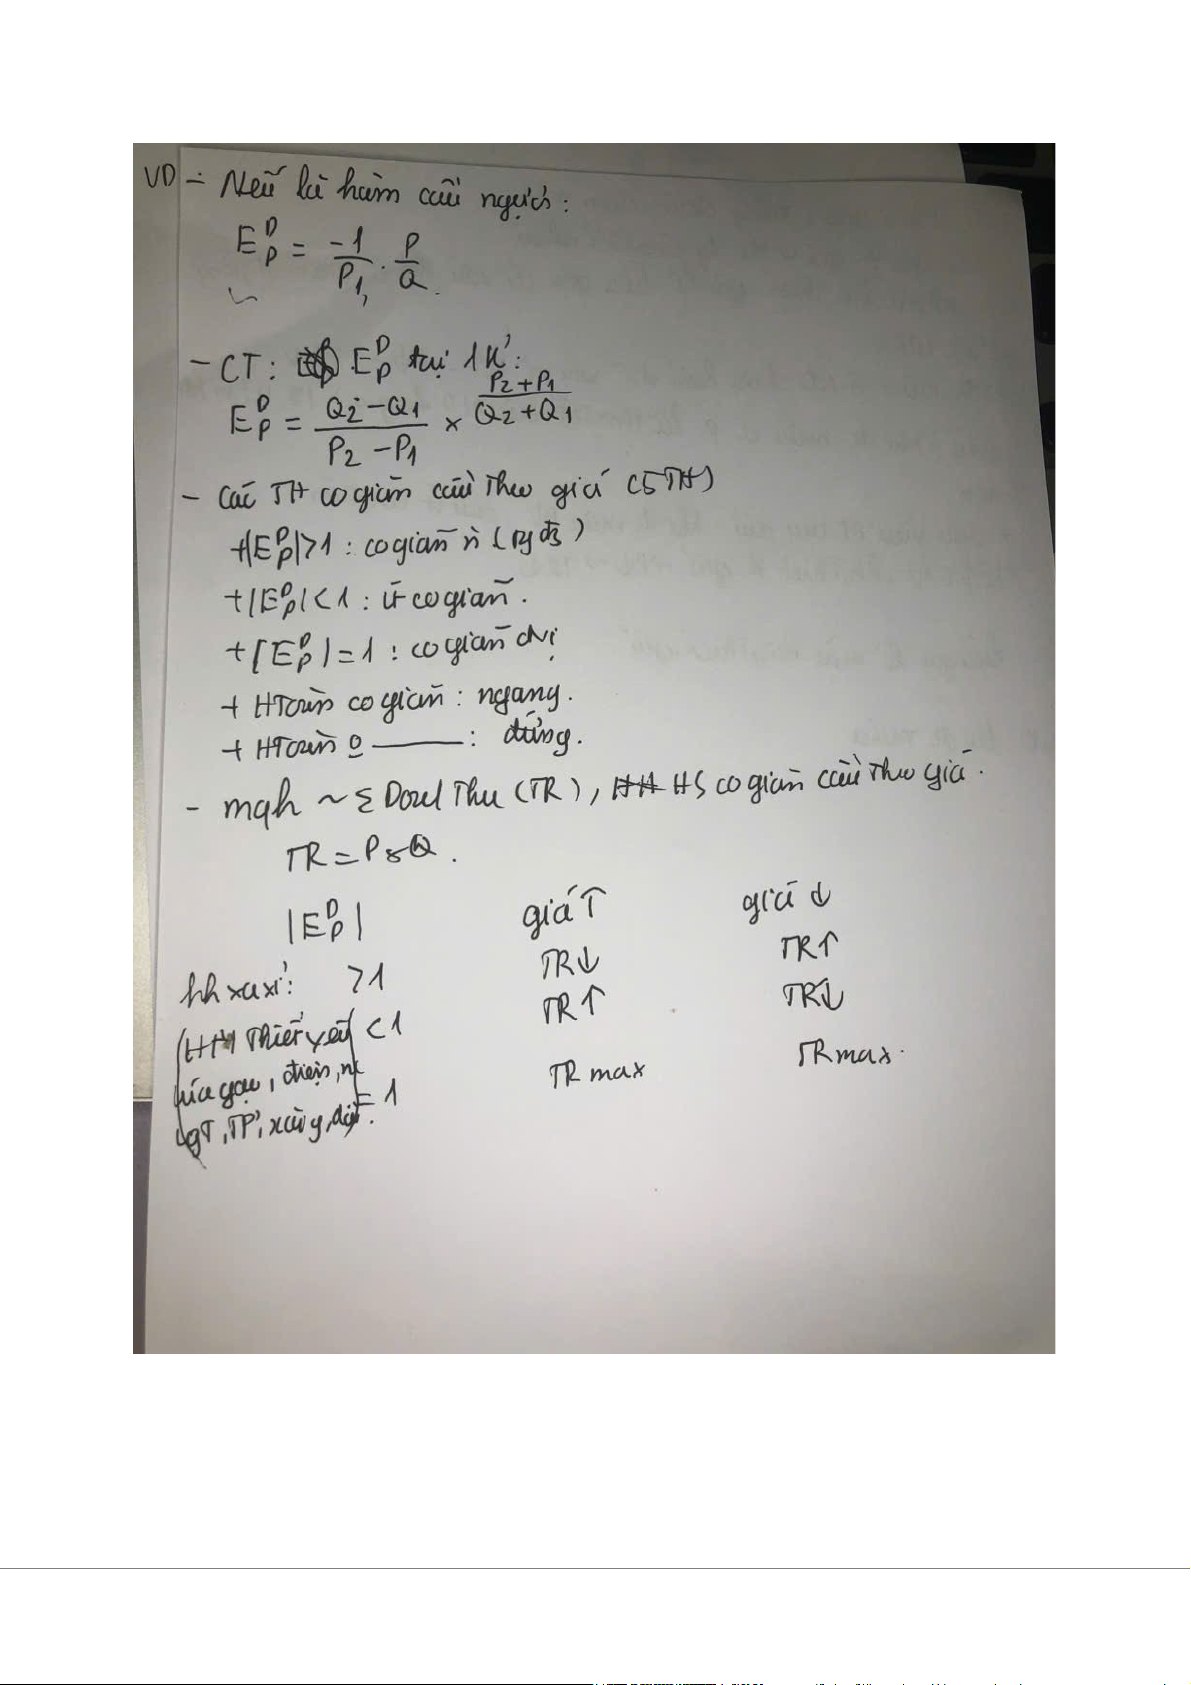 VD - Nếu là hàm cầu ngược:
E^D_P = -1/P'_1 . P/Q
- CT: E^D_P tại 1 K':
E^D_P = (Q2 - Q1)/(P2 - P1) x (P2 + P1)/(Q2 + Q1)
- Các TH co giãn cầu theo giá (5TH)
+ |E^D_P| > 1 : co giãn n
+ |E^D_P| < 1 : ít co giãn.
+ |E^D_P| = 1 : co giãn đvị
+ HToàn co giãn : ngang.
+ HToàn 0 ——— : đứng.
- mqh ~ Σ Doanh Thu (TR), HS co giãn cầu theo giá.
TR = P x Q.
|E^D_P| giá ↑ giá ↓
hh xa xỉ: > 1 TR↓ TR↑
(HH Thiết yếu < 1 TR↑ TR↓
lúa gạo, điện, n = 1 TR max TR max.
TP', xăng, dầu.